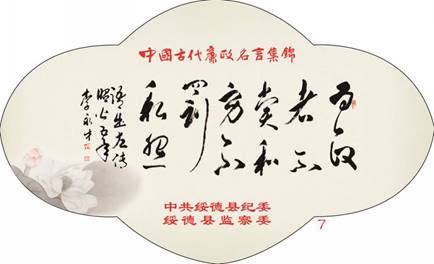 中國古代廉政名言集錦
为政
者不
赏私
劳不
罚
私怨
语出左传
昭公五年
中共绥德县纪委
绥德县监察委
7